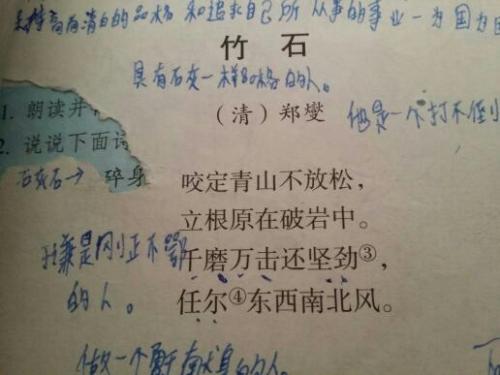 高尚清白的品格 和追求自己所 从事的事业一为国为
竹 石
具有石灰一样品格的人。
1. 朗读并
（清）郑燮
他是一个打不倒
2. 说说下面诗
石灰石→ 碎身
咬定青山不放松，
立根原在破岩中。
于谦是刚正不
千磨万击还坚劲③，
的人。
任尔④东西南北风。
做一个勇于献身的人。